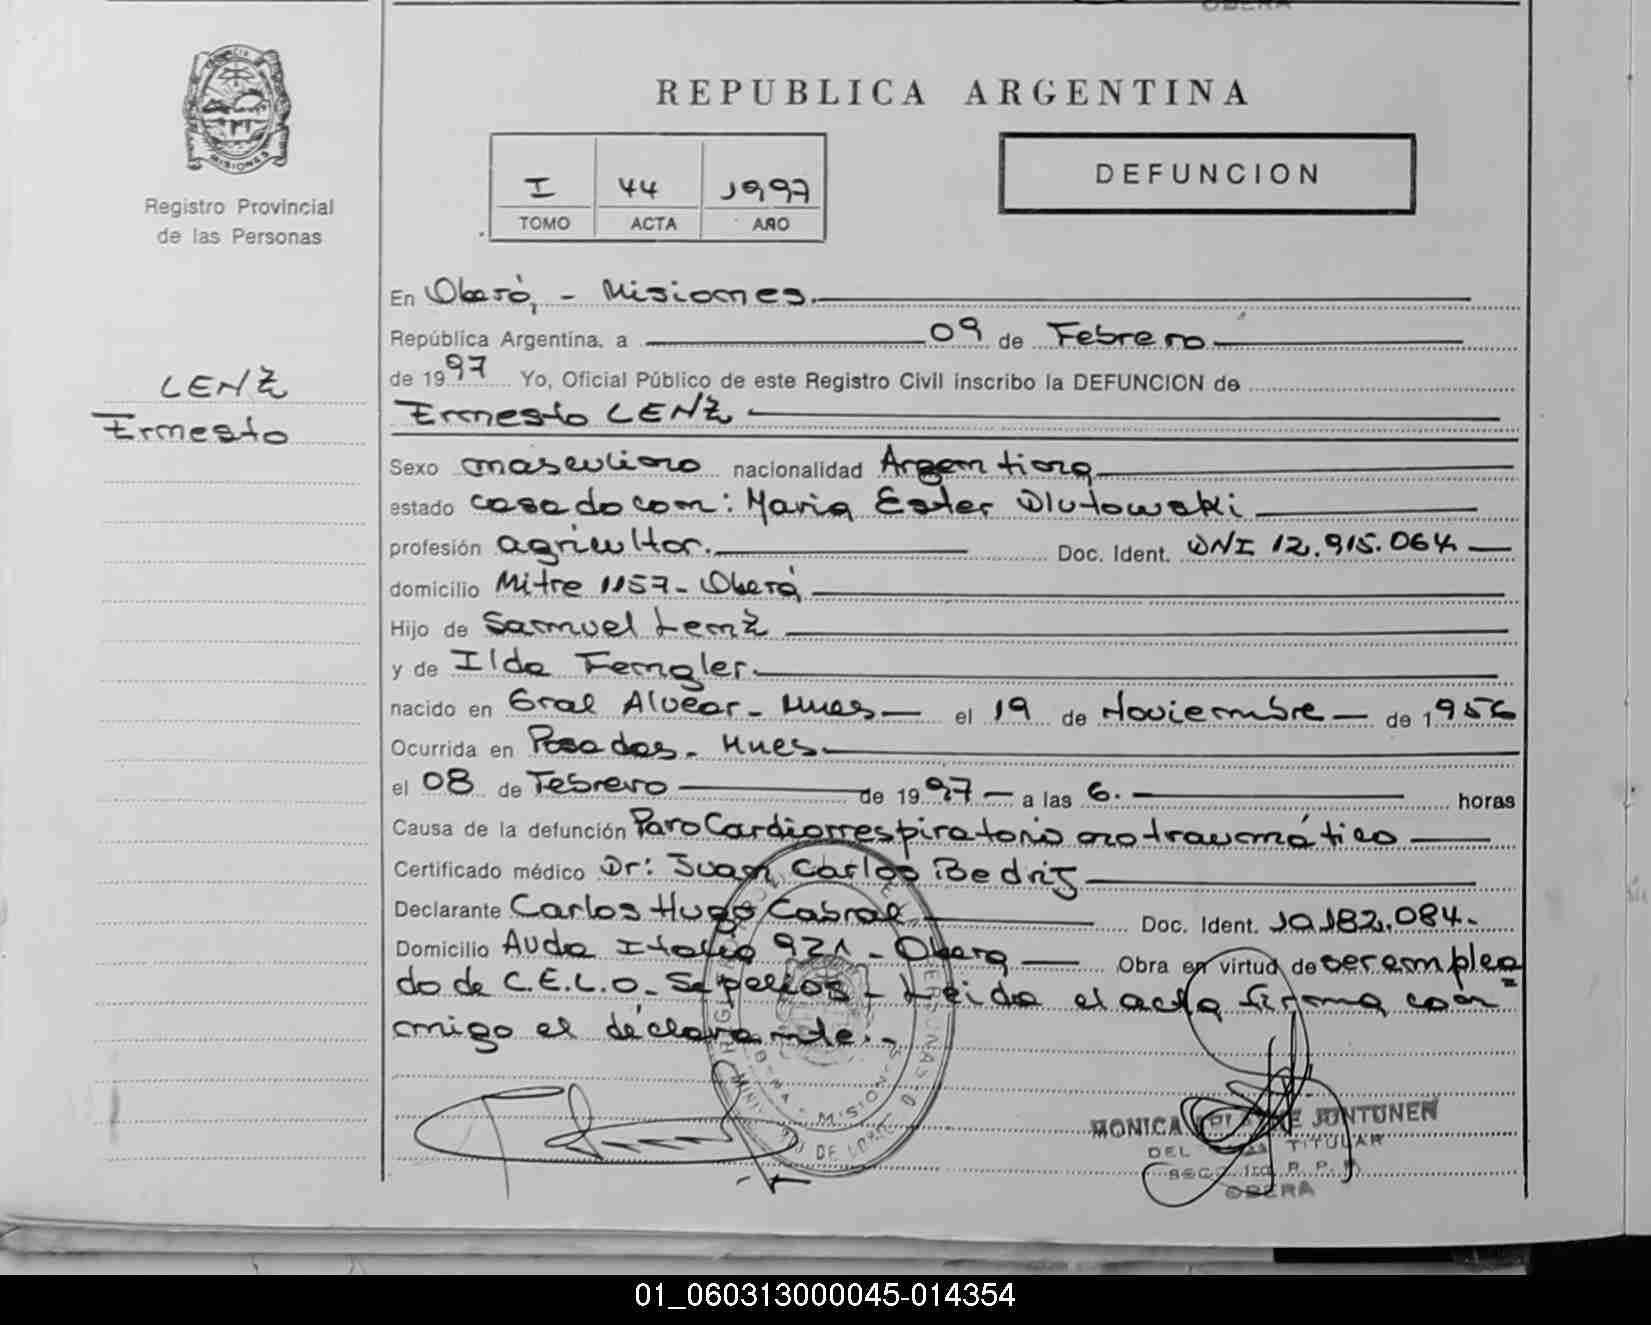 OBERA
PROVINCIA DE
MISIONES
Registro Provincial
de las Personas
REPUBLICA ARGENTINA
I 44 1997
TOMO ACTA AÑO
DEFUNCION
LENZ
Ernesto
En Oberá, - Misiones.
República Argentina, a 09 de Febrero
de 1997 Yo, Oficial Público de este Registro Civil inscribo la DEFUNCION de
Ernesto LENZ
Sexo masculino nacionalidad Argentina
estado casado con: Maria Ester Dlutowski
profesión agricultor. Doc. Ident. DNI 12.915.064
domicilio Mitre 1157 - Oberá
Hijo de Samuel Lenz
y de Ilda Fengler.
nacido en Gral Alvear - Mnes el 19 de Noviembre de 1956
Ocurrida en Posadas - Mnes
el 08 de Febrero de 1997 a las 6. horas
Causa de la defunción Paro Cardiorrespiratorio no traumático
Certificado médico Dr: Juan Carlos Bedrij
Declarante Carlos Hugo Cabral Doc. Ident. 10.182.084.
Domicilio Avda Italia 921 - Obera Obra en virtud de ser emplea
do de C.E.L.O. Sepelios - Leida el acta firma con=
migo el declarante.-
MONICA DE JUNTUNEN
DEL TITULAR
SECC. 1ra R. P. P.
OBERA
01_060313000045-014354